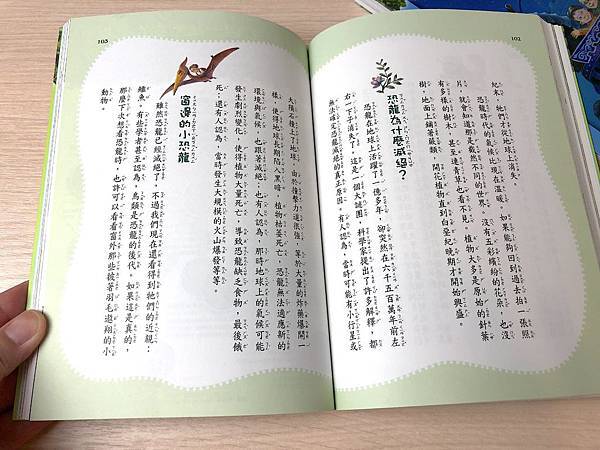 102
紀末，牠們才從地球上消失。
如果能夠回到過去拍一張照
片，就會知道那是截然不同的世界。沒有五彩繽紛的花朵，也沒
有多樣的樹木，甚至連青草也看不見。植物大多是原始的針葉
樹，地面上鋪著蕨類，開花植物直到白堊紀晚期才開始興盛。
恐龍為什麼滅絕？
恐龍在地球上活躍了一億多年，卻突然在六千五百萬年前左
右一下子消失了，這是一個大謎團，科學家提出了許多解釋，都
無法確定恐龍滅絕的真正原因。有人認為，當時可能有小行星或
103
大隕石撞上了地球，由於撞擊力道很強，等於大量的炸藥爆開一
樣，使得地球長期陷入黑暗，植物枯萎死亡，恐龍無法適應新的
環境與氣候，也跟著滅絕；也有人認為，那時地球上的氣候可能
發生劇烈變化，使得植物大量死亡，導致恐龍缺乏食物，最後餓
死；還有人認為，當時發生大規模的火山爆發等等。
窗邊的小恐龍
雖然恐龍已經滅絕了，不過我們現在還看得到牠們的近親：
鱷魚，有些學者甚至認為，鳥類是恐龍的後代。如果這是真的，
那麼下次想看恐龍時，也許可以看看窗外那些披著羽毛遨翔的小
動物。